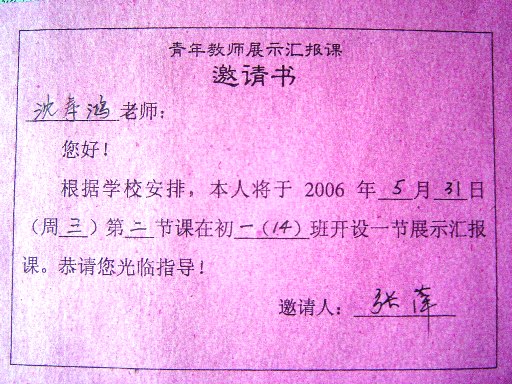 青年教师展示汇报课
邀请书
沈 鸿老师：
您好！
根据学校安排，本人将于 2006 年 5 月 31 日
（周 三 ）第 二 节课在初 一(14) 班开设一节展示汇报
课。恭请您光临指导！
邀请人： 张萍